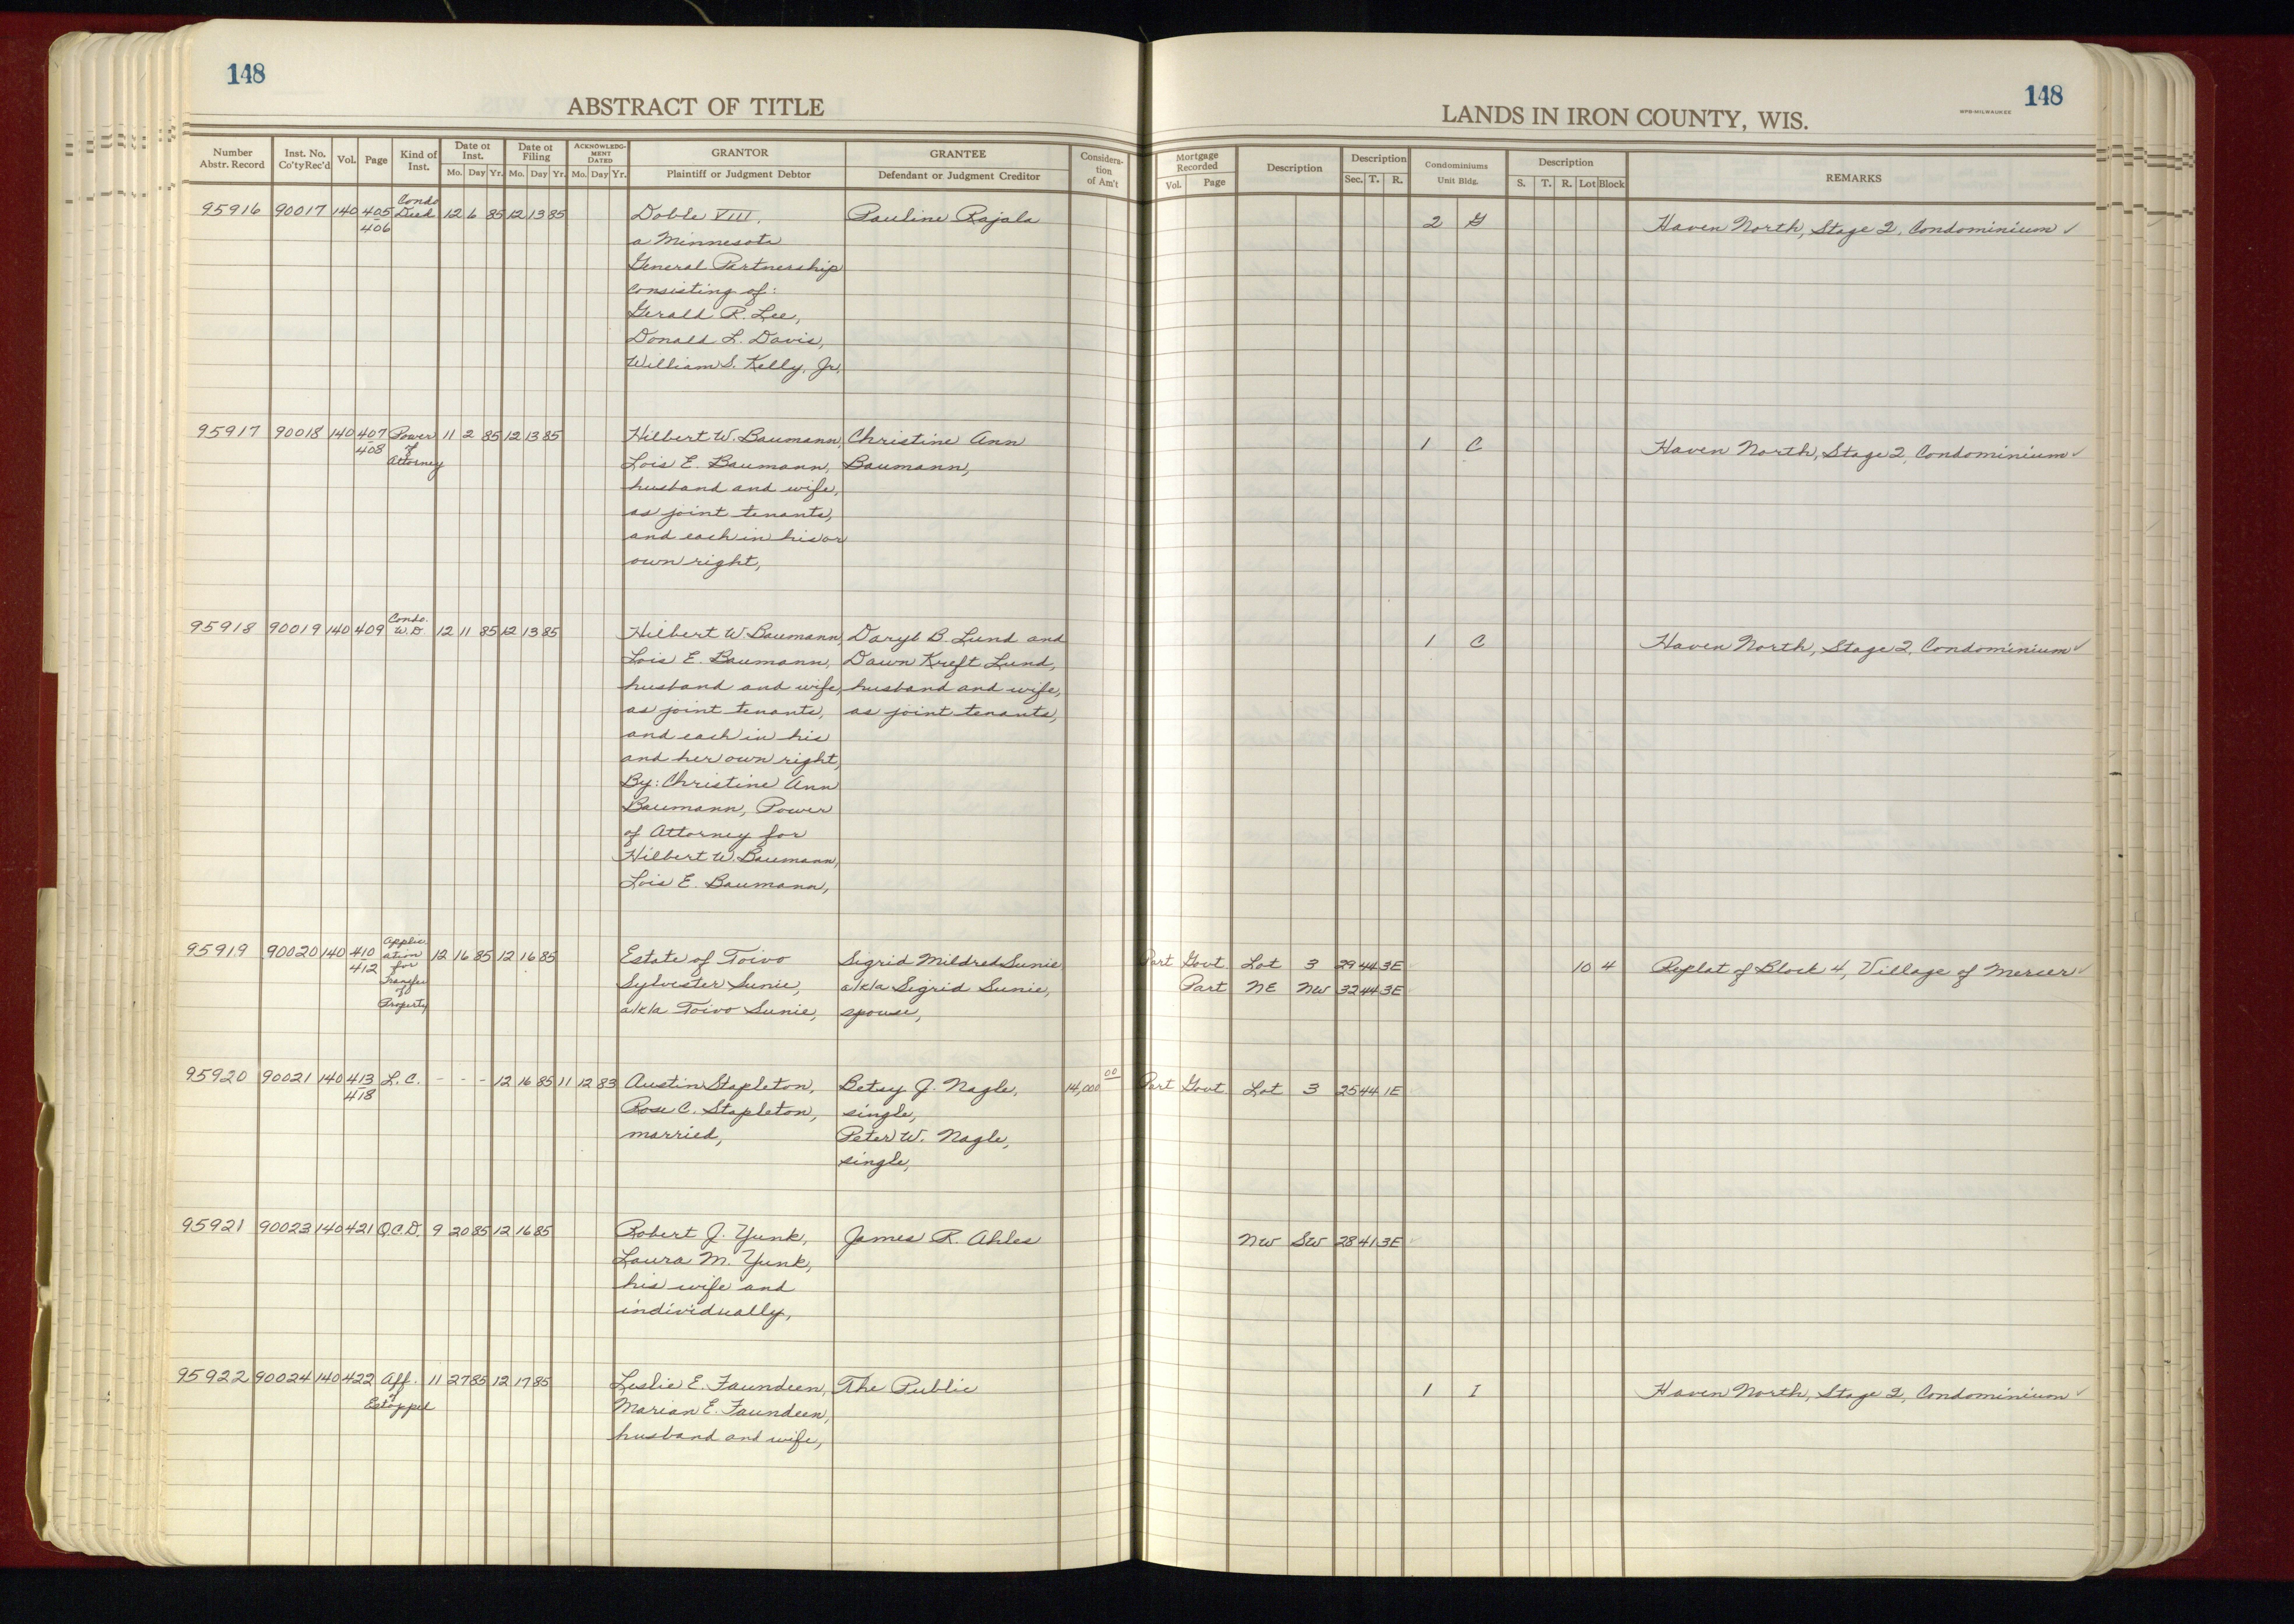 148
ABSTRACT OF TITLE
Number Abstr. Record Inst. No. Co'ty Rec'd Vol. Page Kind of Inst. Date of Inst. Mo. Day Yr. Date of Filing Mo. Day Yr. ACKNOWLEDGMENT DATED Mo. Day Yr. GRANTOR Plaintiff or Judgment Debtor GRANTEE Defendant or Judgment Creditor Consideration of Am't
148
LANDS IN IRON COUNTY, WIS.
WPB-MILWAUKEE
Mortgage Recorded Vol. Page Description Description Sec. T. R. Condominiums Unit Bldg. Description S. T. R. Lot Block REMARKS
95916 90017 140 405 406 Condo Deed 12 6 85 12 13 85 Doble VIII, Pauline Rajala 2 G Haven North, Stage 2, Condominium ✓
a Minnesota
General Partnership
consisting of:
Gerald R. Lee,
Donald L. Davis,
William S. Kelly, Jr.
95917 90018 140 407 408 Power of Attorney 11 2 85 12 13 85 Hilbert W. Baumann, Christine Ann 1 C Haven North, Stage 2, Condominium ✓
Lois E. Baumann, Baumann,
husband and wife,
as joint tenants,
and each in his or
own right,
95918 90019 140 409 Condo. W.D. 12 11 85 12 13 85 Hilbert W. Baumann, Daryl B. Lund and 1 C Haven North, Stage 2, Condominium ✓
Lois E. Baumann, Dawn Kreft Lund,
husband and wife, husband and wife,
as joint tenants, as joint tenants,
and each in his
and her own right,
By: Christine Ann
Baumann, Power
of Attorney for
Hilbert W. Baumann,
Lois E. Baumann,
95919 90020 140 410 412 Application for Transfer of Property 12 16 85 12 16 85 Estate of Toivo Sigrid Mildred Sunie Part Govt Lot 3 29 44 3E 10 4 Replat of Block 4, Village of Mercer ✓
Sylvester Sunie, a/k/a Sigrid Sunie, Part NE NW 32 44 3E
a/k/a Toivo Sunie, spouse,
95920 90021 140 413 418 L.C. - - - 12 16 85 11 12 83 Austin Stapleton, Betsy J. Nagle, 14,000 00 Part Govt Lot 3 25 44 1E
Rose C. Stapleton, single,
married, Peter W. Nagle,
single,
95921 90023 140 421 Q.C.D. 9 20 85 12 16 85 Robert J. Yunk, James R. Ahles NW SW 28 41 3E
Laura M. Yunk,
his wife and
individually,
95922 90024 140 422 Aff. of Estoppel 11 27 85 12 17 85 Leslie E. Faundeen, The Public 1 I Haven North, Stage 2, Condominium ✓
Marian E. Faundeen,
husband and wife,